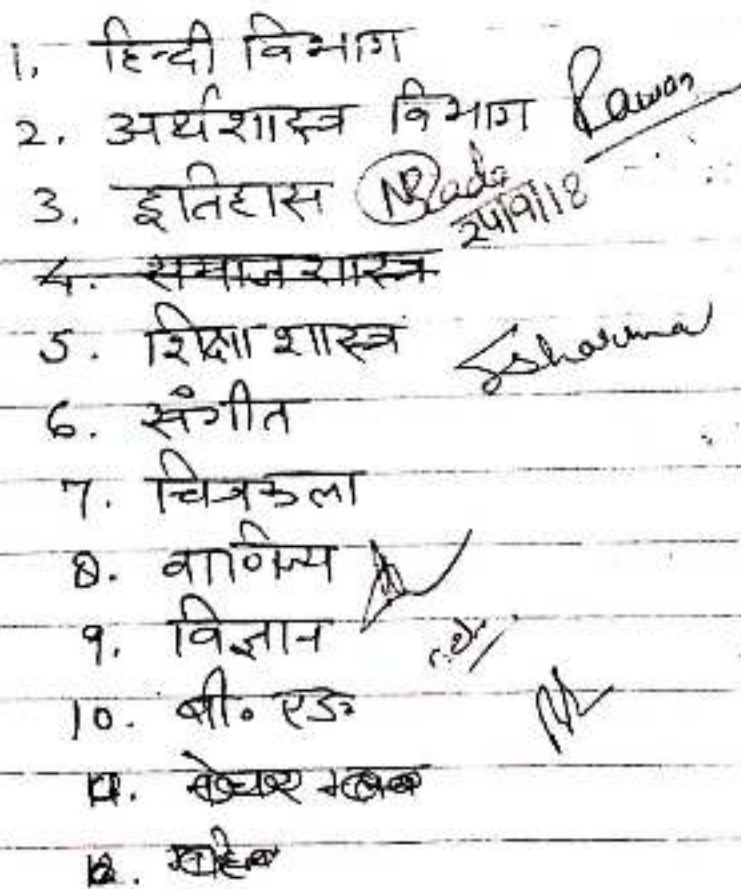 1. हिन्दी विभाग
2. अर्थशास्त्र विभाग Pawan
3. इतिहास
24/9/18
4. समाजशास्त्र
5. शिक्षा शास्त्र Sharma
6. संगीत
7. चित्रकला
8. वाणिज्य
9. विज्ञान
10. बी॰ एड॰
11.
12.